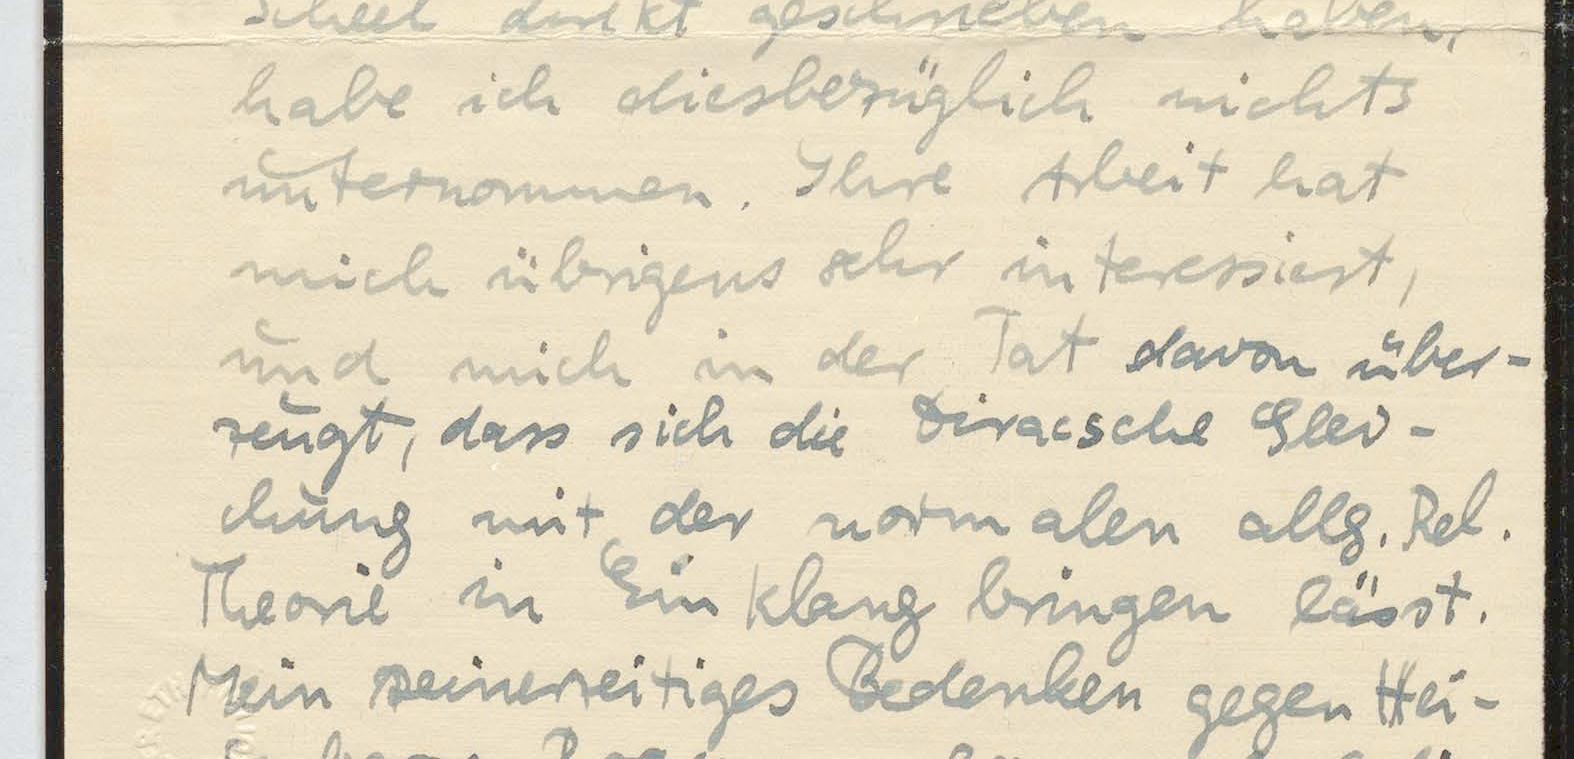 Scheel direkt geschrieben haben,
habe ich diesbezüglich nichts
unternommen. Ihre Arbeit hat
mich übrigens sehr interessiert,
und mich in der Tat davon über-
zeugt, dass sich die Diracsche Glei-
chung mit der normalen allg. Rel.
Theorie in Einklang bringen lässt.
Mein seinerzeitiges Bedenken gegen Hei-